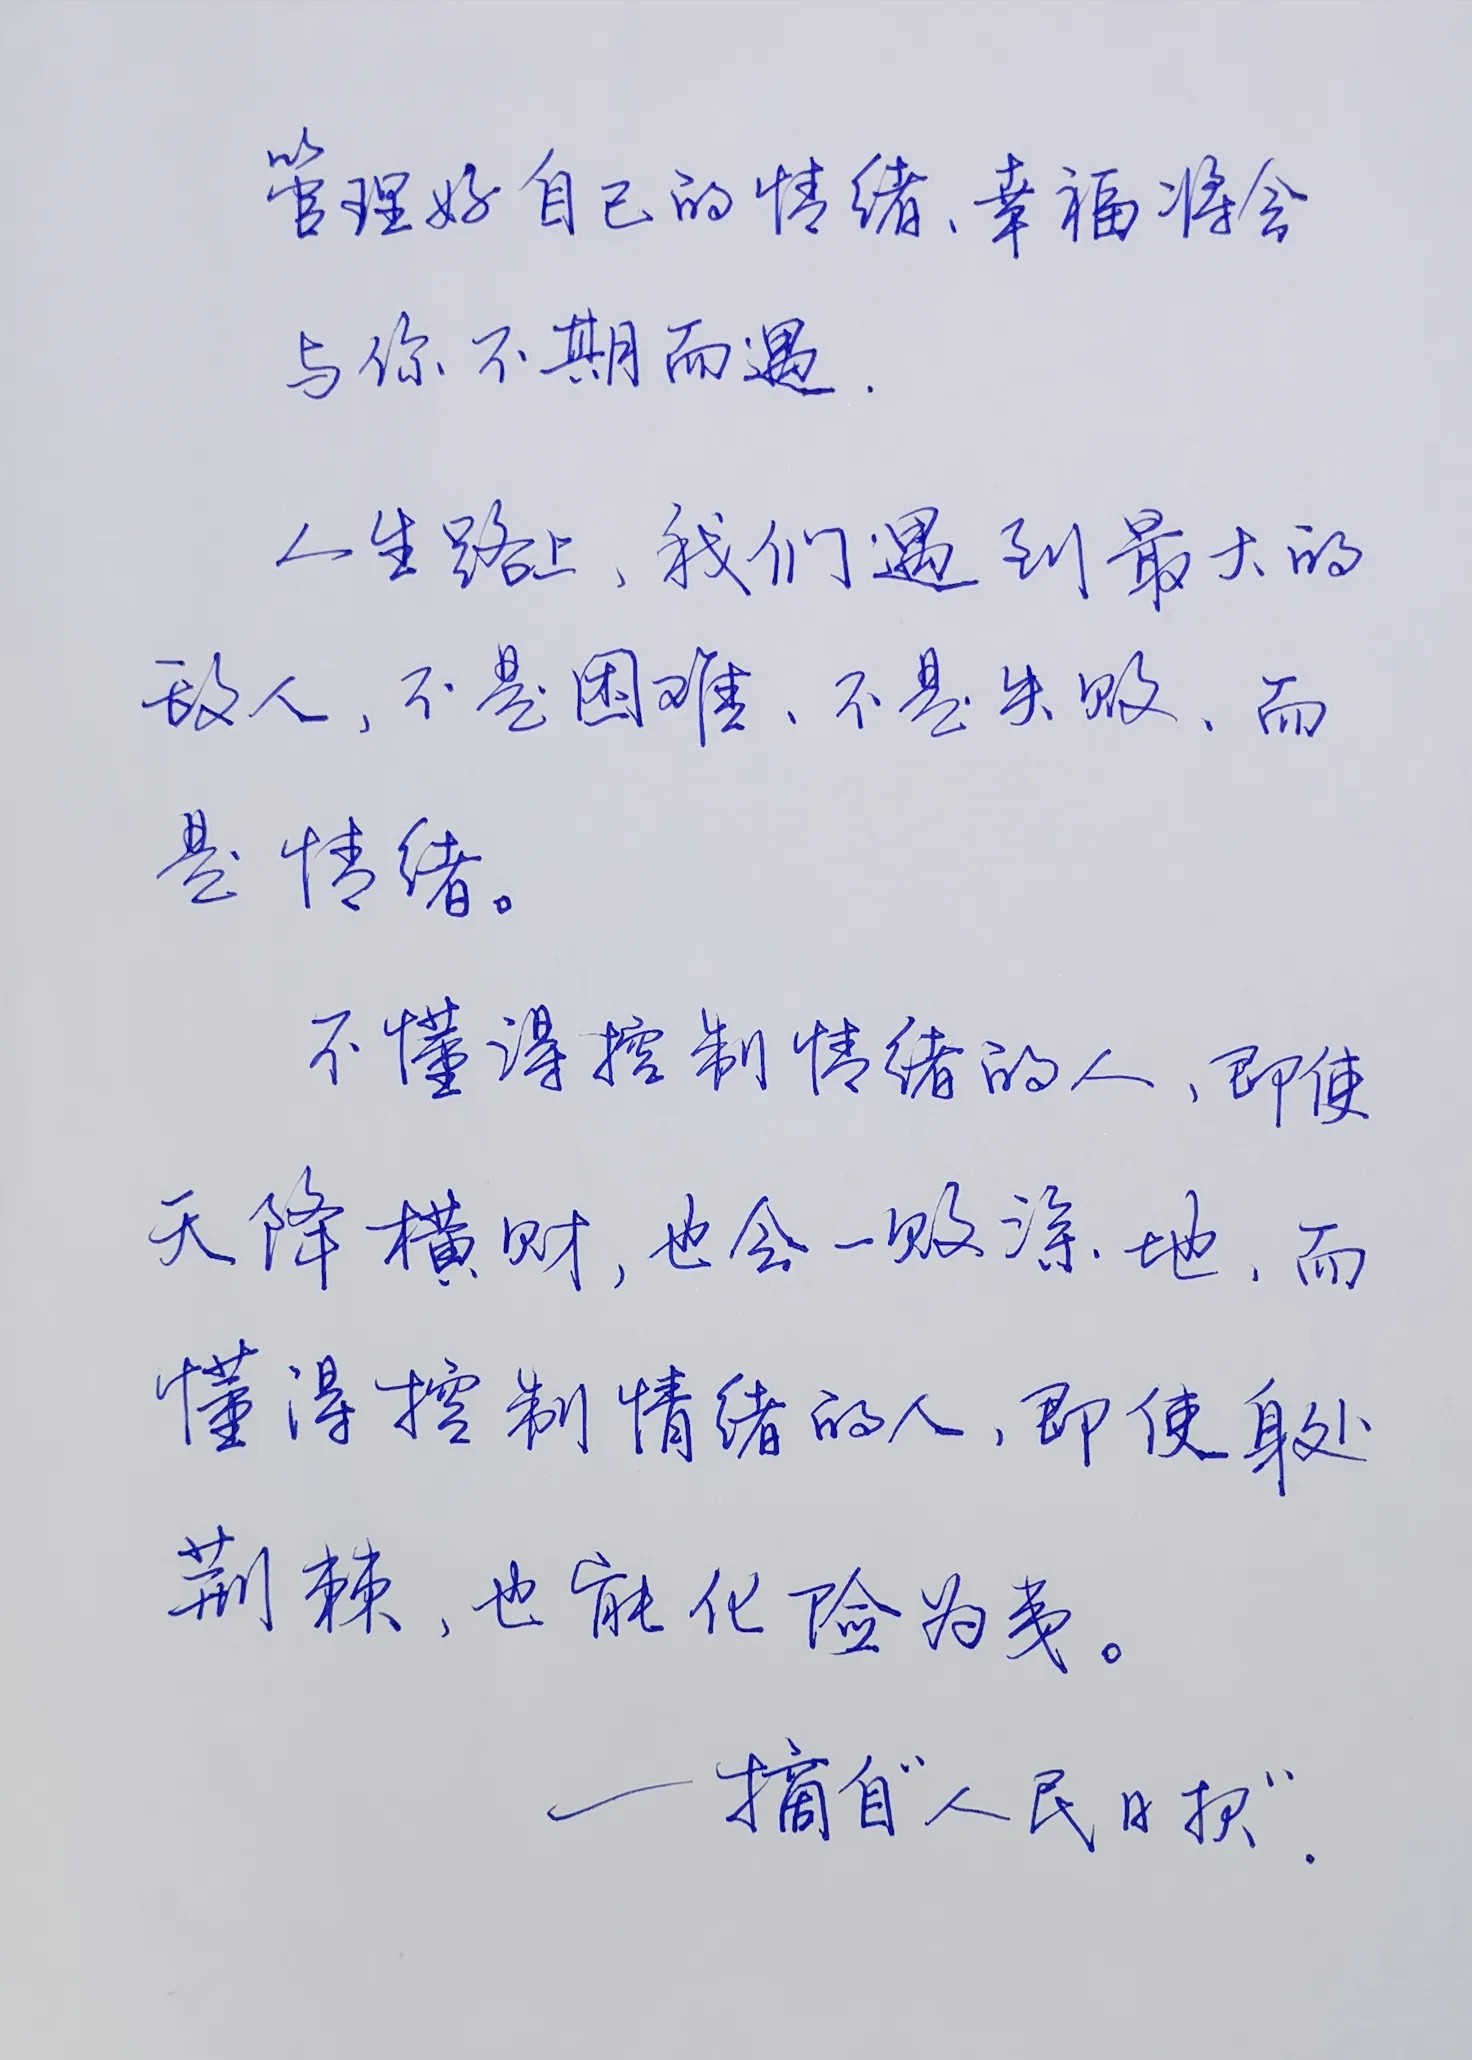 管理好自己的情绪、幸福将会
与你不期而遇.
人生路上,我们遇到最大的
敌人,不是困难、不是失败、而
是情绪。
不懂得控制情绪的人,即使
天降横财,也会一败涂地,而
懂得控制情绪的人,即使身处
荆棘,也能化险为夷。
——摘自“人民日报”.